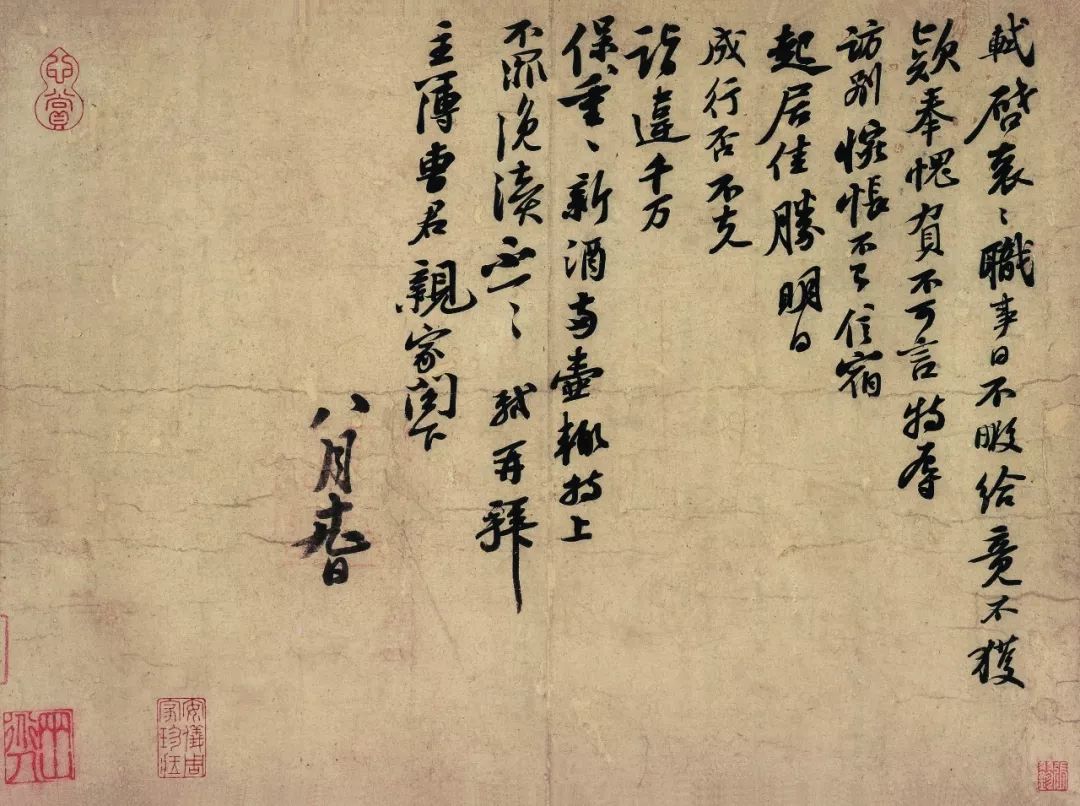 軾啓袞〻職事日不暇給竟不獲
款奉愧負不可言特辱
訪別惋悵不已信宿
起居佳勝明日
成行否不克
詣違千万
保重〻新酒兩壺輒持上
不罪浼瀆不一〻軾再拜
主簿曹君親家閤下
八月十九日
心賞
安儀周家珍藏